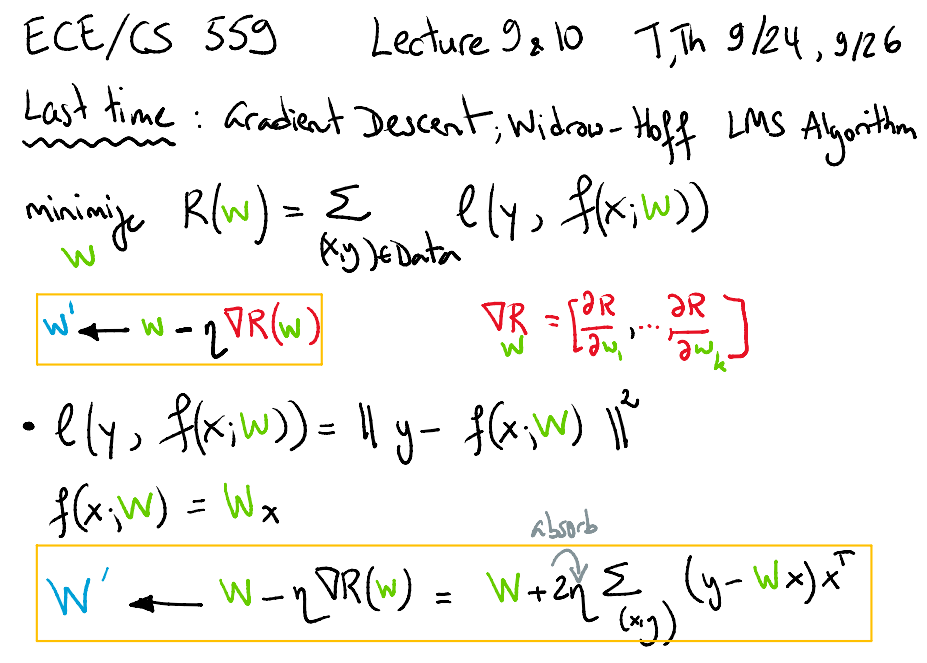 ECE/CS 559 Lecture 9 & 10 T,Th 9/24, 9/26
Last time : Gradient Descent, Widrow-Hoff LMS Algorithm
minimize R(w) = Σ ℓ(y, f(x;W))
W (x,y)∈Data
W' ← W - η∇R(w) ∇R = [∂R/∂w₁, ..., ∂R/∂wₖ]
W
• ℓ(y, f(x;W)) = || y - f(x;W) ||²
f(x;W) = Wx
absorb
W' ← W - η∇R(w) = W + 2η Σ (y - Wx)xᵀ
(x,y)